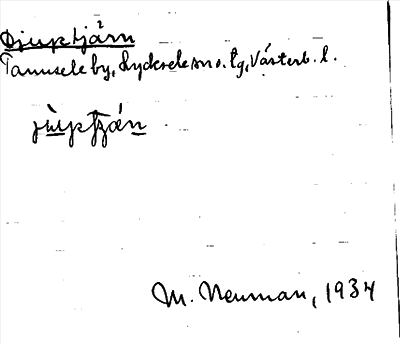 Djuptjärn
Tannsele by, Lycksele sn o. tg, Västerb. l.
M. Neuman, 1934